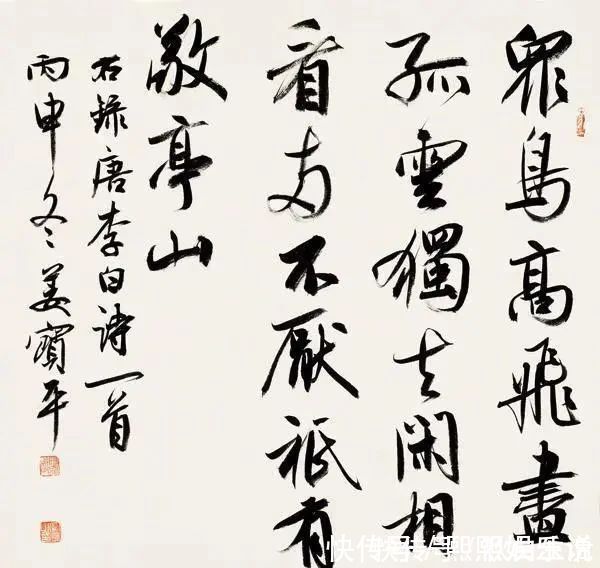 眾鳥高飛盡
孤雲獨去閑相
看兩不厭祇有
敬亭山
右錄唐李白詩一首
丙申冬姜寶平
快传号/熙熙娱乐